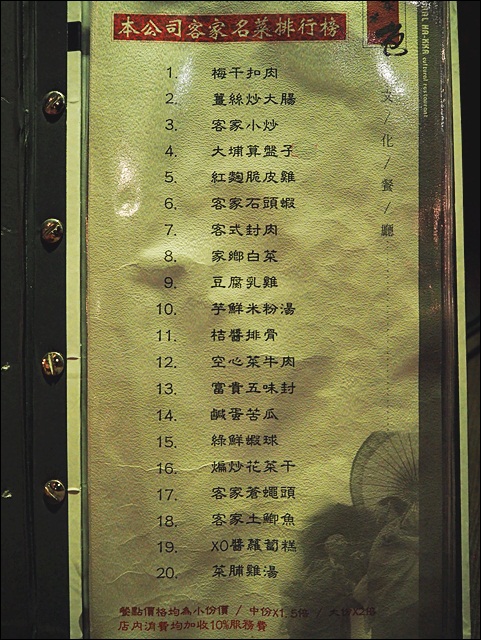 本公司客家名菜排行榜
色
HA-KKA cultural restaurant
文/化/餐/廳
1. 梅干扣肉
2. 薑絲炒大腸
3. 客家小炒
4. 大埔算盤子
5. 紅麴脆皮雞
6. 客家石頭蝦
7. 客式封肉
8. 家鄉白菜
9. 豆腐乳雞
10. 芋鮮米粉湯
11. 桔醬排骨
12. 空心菜牛肉
13. 富貴五味封
14. 鹹蛋苦瓜
15. 綠鮮蝦球
16. 煸炒花菜干
17. 客家蒼蠅頭
18. 客家土鯽魚
19. XO醬蘿蔔糕
20. 菜脯雞湯
餐點價格均為小份價 / 中份X1.5倍 / 大份X2倍
店內消費均加收10%服務費